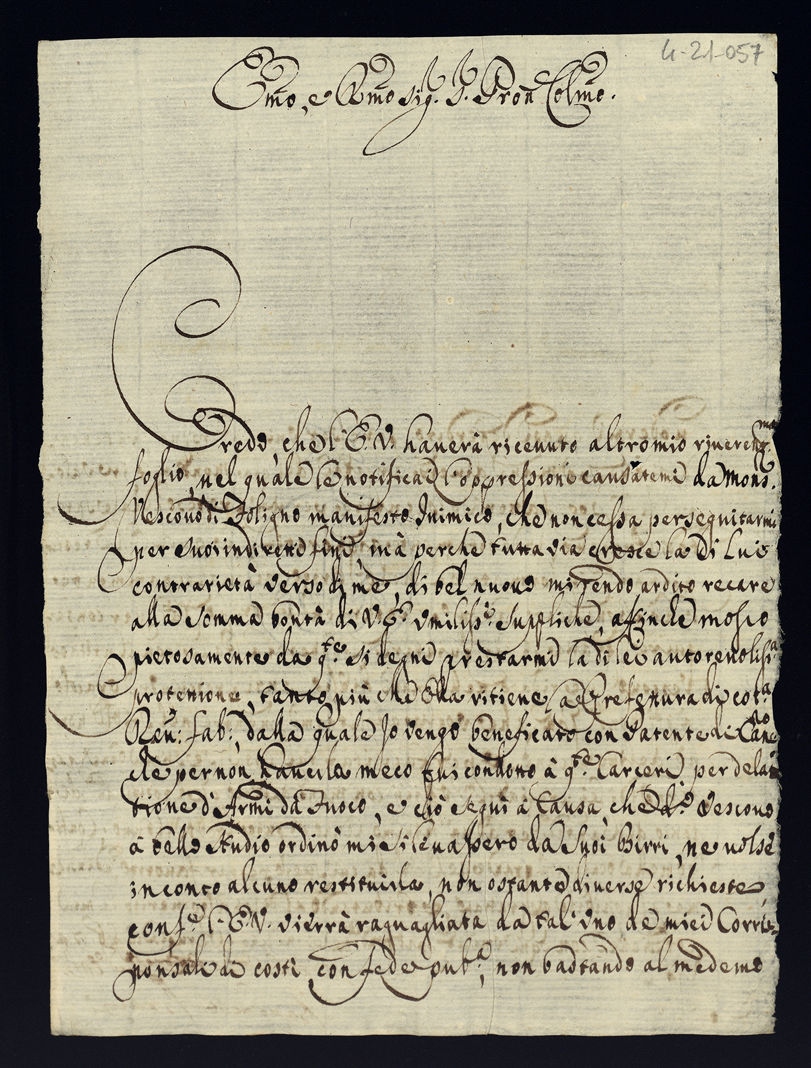 4-21-057
Emo, e Rmo Sig. S. Pron Colmo.
Credo, che l'E. V. haverà ricevuto altro mio riverengmo
foglio, nel quale le notificai l'oppressioni causatemi da Mons.
Vescovo di Foligno manifesto Inimico, che non cessa perseguitarmi
per suoi indirend fini, mà perche tuttavia cresce la di lui
contrarietà verso di me, di bel nuovo mi rendo ardito recare
alla somma bontà di V. E. umiliss.e suppliche, affinche mosso
pietosamente da q.te si degni prestarmi la di lei autorevoliss.a
protettione, tanto più che Ella ritiene la Prefettura di cot.a
Rev. fab., dalla quale Io vengo beneficato con Patente de
che per non haverla meco fui condotto à q.te Carceri per dela
tione d'Armi da fuoco, e ciò seguì à causa, che d.o Vescovo
à bello studio ordinò mi si levassero da suoi birri, ne volse
in conto alcuno restituirla, non ostante diverse richieste
conf.e l'E. V. verrà raguagliata da tal' uno de miei Corris=
ponsale de costì con fede pub.a, non bastando al medemo